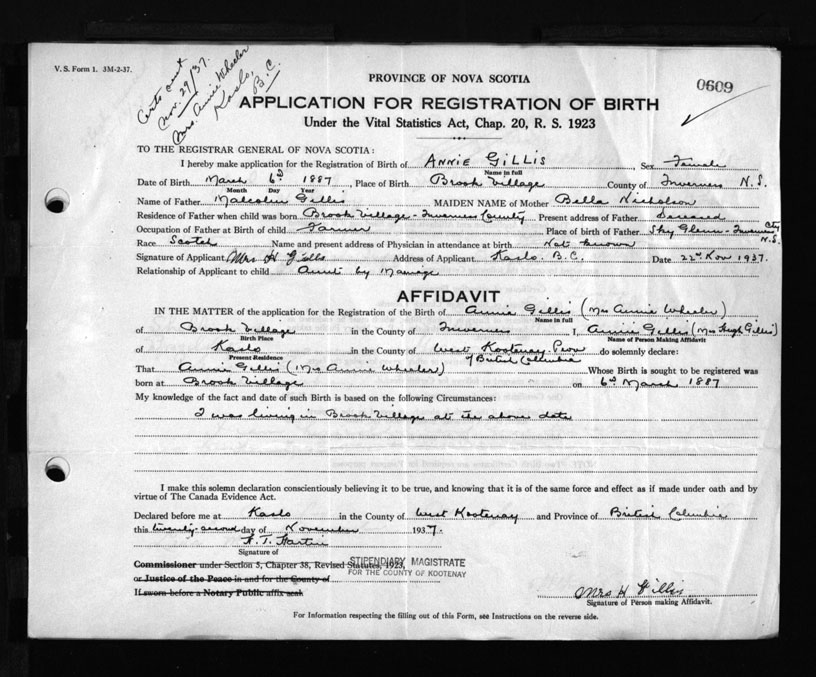 V. S. Form 1. 3M-2-37.
Certs sent
Nov. 29/37.
Mrs. Annie Wheeler
Kaslo,
B.C.
0609
PROVINCE OF NOVA SCOTIA
APPLICATION FOR REGISTRATION OF BIRTH
Under the Vital Statistics Act, Chap. 20, R. S. 1923
TO THE REGISTRAR GENERAL OF NOVA SCOTIA:
I hereby make application for the Registration of Birth of ANNIE GILLIS Sex Female
Name in full
Date of Birth March 6th 1887, Place of Birth Brook Village County of Inverness N.S.
Month Day Year
Name of Father Malcolm Gillis MAIDEN NAME of Mother Bella Nicholson
Residence of Father when child was born Brook Village - Inverness County Present address of Father Deceased
Occupation of Father at Birth of child Farmer Place of birth of Father Sky Glenn - Inverness Cty N.S.
Race Scotch Name and present address of Physician in attendance at birth Not known
Signature of Applicant Mrs H Gillis Address of Applicant Kaslo. B.C. Date 22nd Nov 1937.
Relationship of Applicant to child Aunt by Marriage
AFFIDAVIT
IN THE MATTER of the application for the Registration of the Birth of Annie Gillis (Mrs Annie Wheeler)
Name in full
of Brook Village in the County of Inverness I, Annie Gillis (Mrs Hugh Gillis)
Birth Place Name of Person Making Affidavit
of Kaslo in the County of West Kootenay Prov of British Columbia do solemnly declare:
Present Residence
That Annie Gillis (Mrs Annie Wheeler) Whose Birth is sought to be registered was
born at Brook Village on 6th March 1887
My knowledge of the fact and date of such Birth is based on the following Circumstances:
I was living in Brook Village at the above date
I make this solemn declaration conscientiously believing it to be true, and knowing that it is of the same force and effect as if made under oath and by
virtue of The Canada Evidence Act.
Declared before me at Kaslo in the County of West Kootenay and Province of British Columbia
this twenty-second day of November 1937.
Signature of
Commissioner under Section 5, Chapter 38, Revised Statutes, 1923, STIPENDIARY MAGISTRATE
or Justice of the Peace in and for the County of FOR THE COUNTY OF KOOTENAY
If sworn before a Notary Public affix seal
Mrs H Gillis
Signature of Person making Affidavit.
For Information respecting the filling out of this Form, see Instructions on the reverse side.